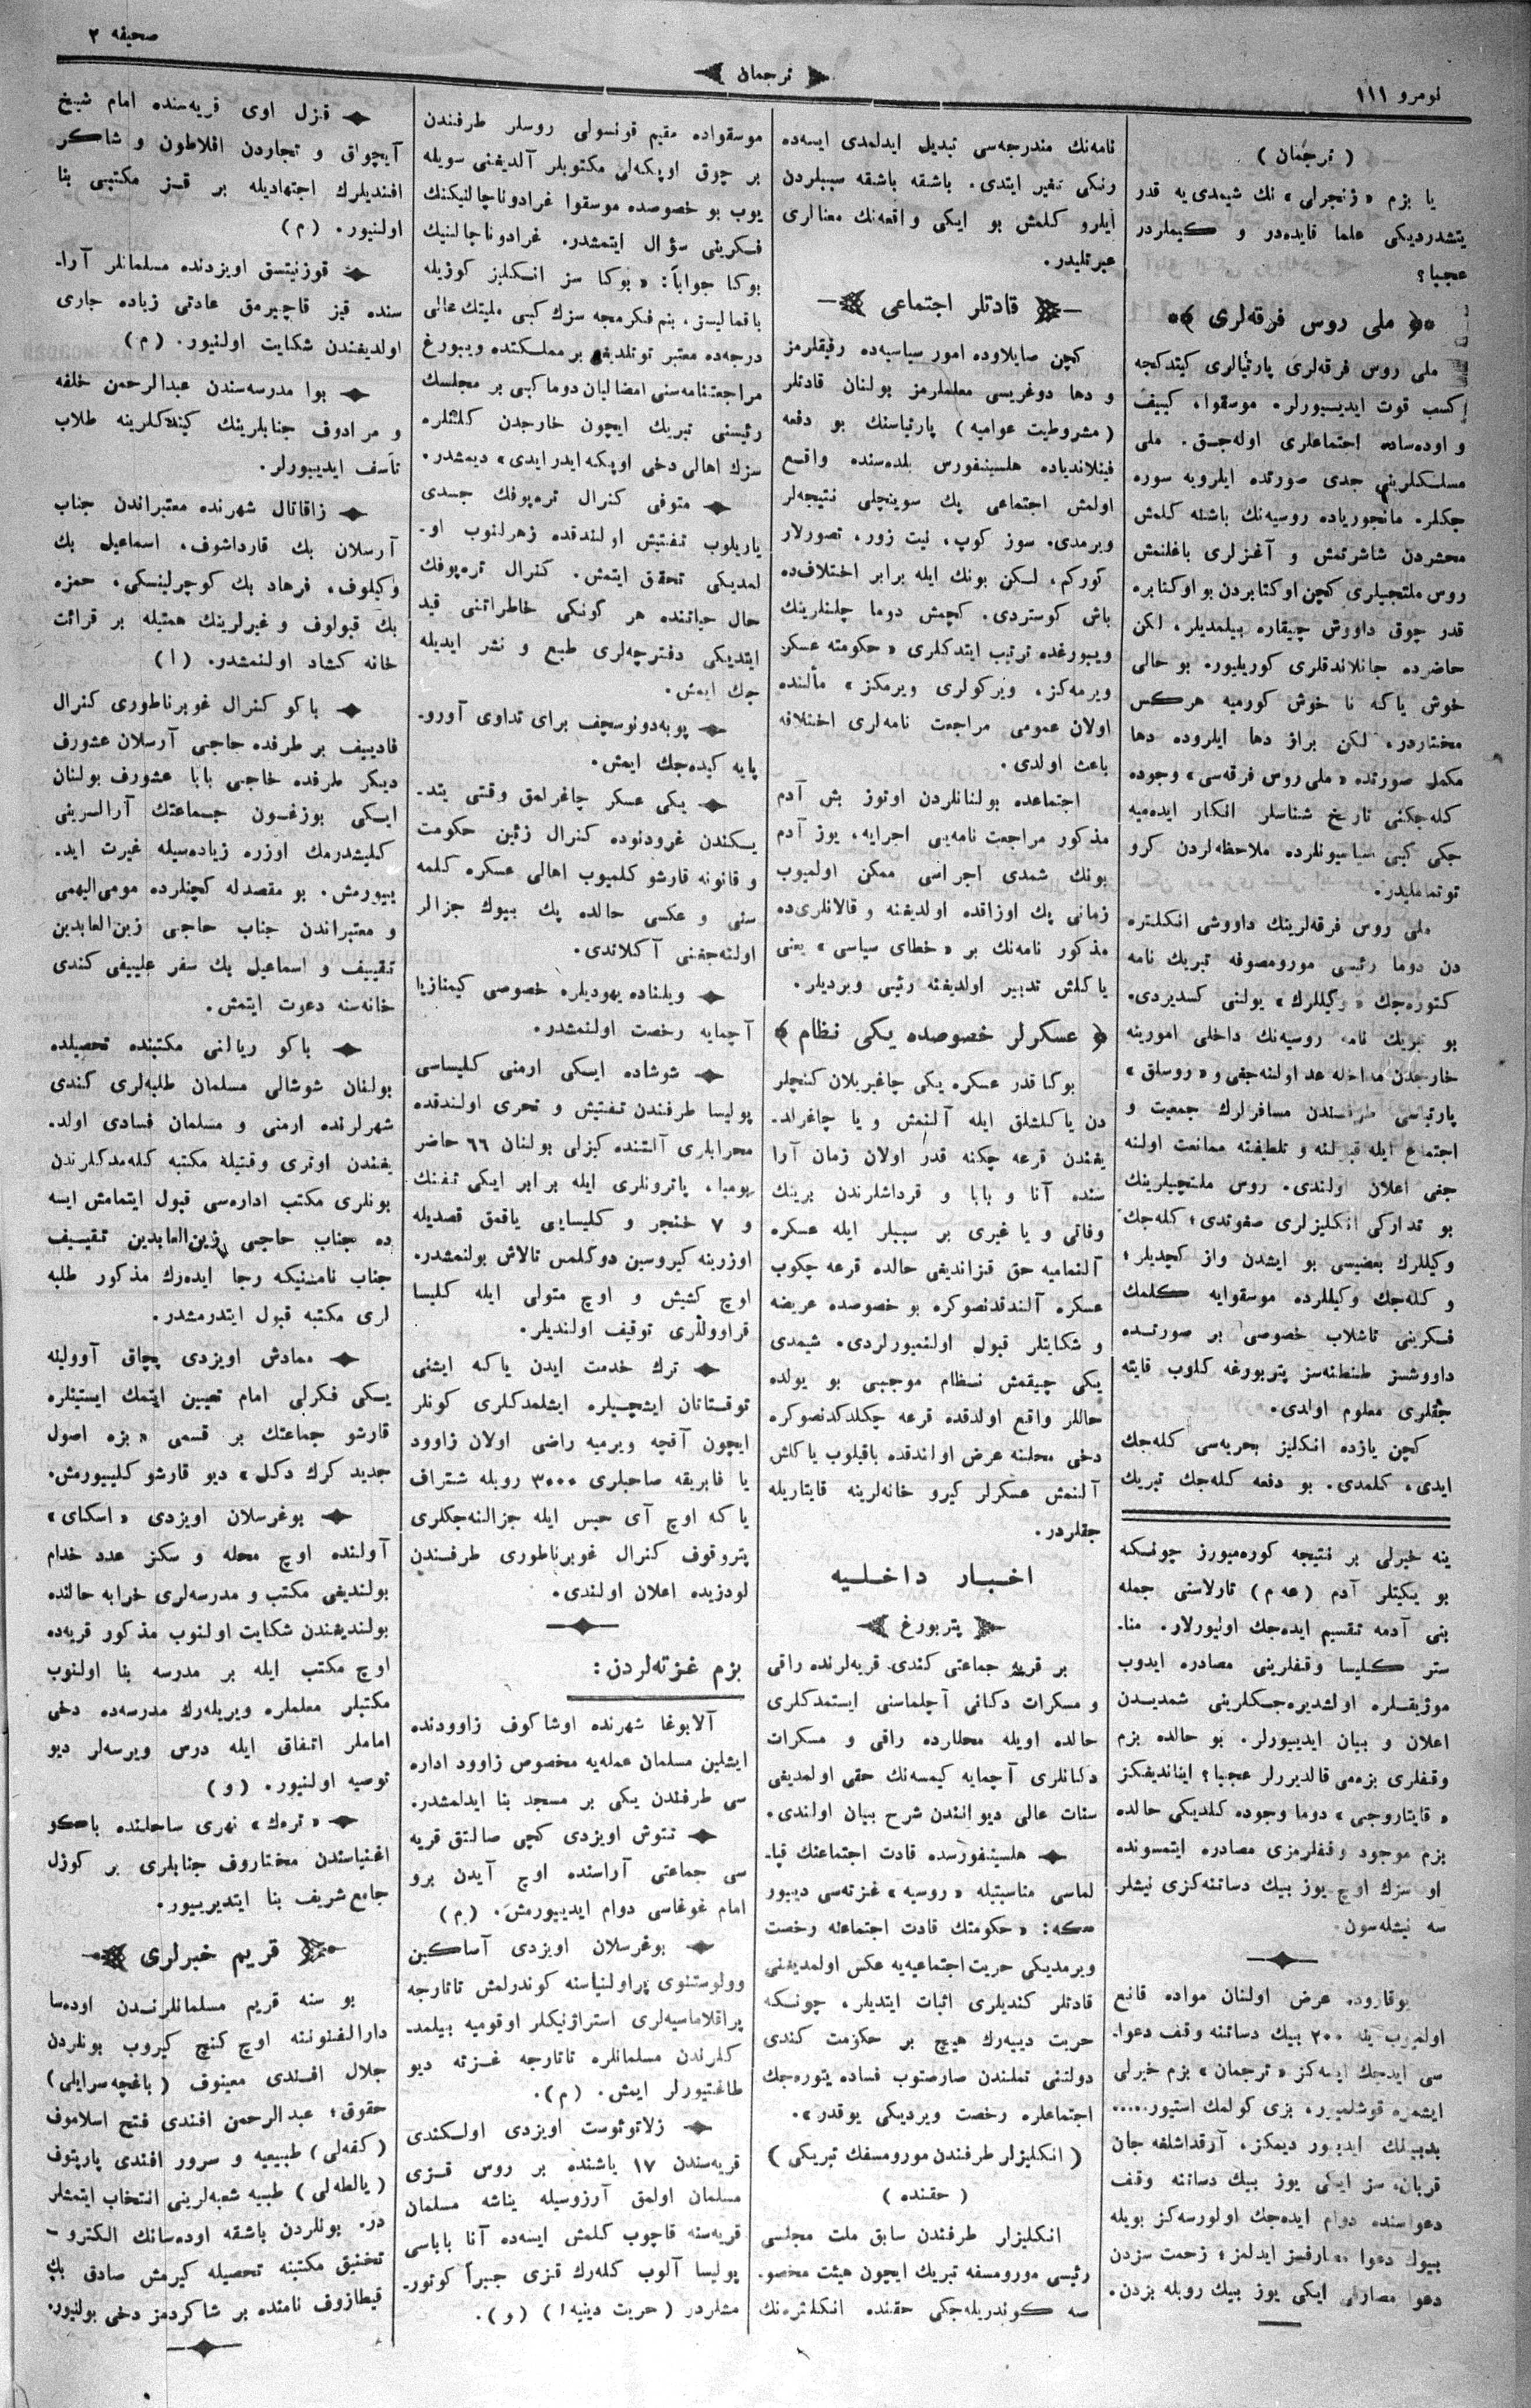 نومرو ١١١
ترجمان
صحیفه ٢
( ترجمان )
یا بزم « زنجرلی » نك شیمدی‌یه قدر
یتشدردیکی علما قایده‌در و کیملردر
عجبا؟
ملی روس فرقه‌لری
ملی روس فرقه‌لری پارتیالری کیتدکچه
کسب قوت ایدییورلر. موسقوا، کییف
و اوده‌ساده اجتماعلری اوله‌جق. ملی
مسلکلرینی جدی صورتده ایلرویه سوره
جکلر. مانجوریاده روسیه‌نك باشنه کلمش
محشردن شاشرتمش و آغزلری باغلنمش
روس ملتجیلری کچن اوکتابردن بو اوکتابره
قدر چوق داووش چیقاره بیلمدیلر، لکن
حاضرده جانلاندقلری کوریلیور. بو حالی
خوش یاکه نا خوش کورمیه هرکس
مختاردر. لکن براز دها ایلروده دها
مکمل صورتده « ملی روس فرقه‌سی » وجوده
کله‌جکنی تاریخ شناسلر انکار ایده‌میه
جکی کبی سیاسیونلرده ملاحظه‌لردن کرو
توتماملیدر.
ملی روس فرقه‌لرینك داووشی انکلتره
دن دوما رئیسی مورومصوفه تبریك نامه
کتوره‌جك « وکیللرك » یولنی کسدیردی.
بو تبریك نامه روسیه‌نك داخلی امورینه
خارجدن مداخله عد اولنه‌جغی و « روسلق »
پارتیاسی طرفندن مسافرلرك جمعیت و
اجتماع ایله قبولنه و تلطیفنه ممانعت اولنه
جغی اعلان اولندی. روس ملتچیلرینك
بو تدارکی انکلیزلری صغوتدی؛ کله‌جك
وکیللرك بعضیسی بو ایشدن واز کچدیلر؛
و کله‌جك وکیللرده موسقوایه کلمك
فکرینی تاشلاب خصوصی بر صورتده
داووشسز طنطنه‌سز پتربورغه کلوب قایته
جقلری معلوم اولدی.
کچن یازده انکلیز بحریه‌سی کله‌جك
ایدی، کلمدی. بو دفعه کله‌جك تبریك
ینه خیرلی بر نتیجه کوره‌میورز چونکه
بو یکیتلر آدم ( عه م ) تارلاسنی جمله
بنی آدمه تقسیم ایده‌جك اولیورلار. منا-
ستر کلیسا وقفلرینی مصادره ایدوب
موژیقلره اولشدیره‌جکلرینی شمدیدن
اعلان و بیان ایدییورلر. بو حالده بزم
وقفلری بزه‌می قالدیررلر عجبا؟ ایناندیغکز
« قایتاروجی » دوما وجوده کلدیکی حالده
بزم موجود وقفلرمزی مصادره ایتمسونده
او سزك اوچ یوز بیك دساتنه‌کزی نیشلر
سه نیشله‌سون.
یوقاروده عرض اولنان مواده قانع
اولمیوب ینه ٢٠٠ بیك دساتنه وقف دعوا-
سی ایدجك ایسه‌کز « ترجمان » بزم خیرلی
ایشمزه قوشلمیور، بزی کولمك استیور.....
بدبینلك ایدیور دیمکز، آرقداشلغه جان
قربان، سز ایکی یوز بیك دساتنه وقف
دعواسنده دوام ایده‌جك اولورسه‌کز بویله
بیوك دعوا مصارفسز ایدلمز؛ زحمت سزدن
دعوا مصارفی ایکی یوز بیك روبله بزدن.
نامه‌نك مندرجه‌سی تبدیل ایدلمدی ایسه‌ده
رنکی تغیر ایتدی. باشقه باشقه سببلردن
ایلرو کلمش بو ایکی واقعه‌نك معنالری
عبرتلیدر.
قادتلر اجتماعی
کچن صایلاوده امور سیاسیه‌ده رفیقلرمز
و دها دوغریسی معلملرمز بولنان قادتلر
( مشروطیت عوامیه ) پارتیاسنك بو دفعه
فینلاندیاده هلسینفورس بلده‌سنده واقع
اولمش اجتماعی پك سوینچلی نتیجه‌لر
ویرمدی. سوز کوپ، نیت زور، تصورلار
کورکم، لکن بونك ایله برابر اختلاف‌ده
باش کوستردی. کچمش دوما چلنلرینك
ویبورغده ترتیب ایتدکلری « حکومته عسکر
ویرمه‌کز، ویرکولری ویرمکز » مألنده
اولان عمومی مراجعت نامه‌لری اختلافه
باعث اولدی.
اجتماعده بولنانلردن اوتوز بش آدم
مذکور مراجعت نامه‌یی اجرایه، یوز آدم
بونك شمدی اجراسی ممکن اولمیوب
زمانی پك اوزاقده اولدیغنه و قالانلری‌ده
مذکور نامه‌نك بر « خطای سیاسی » یعنی
یاکلش تدبیر اولدیغنه رئیی ویردیلر.
عسکرلر خصوصده یکی نظام
بوکا قدر عسکره یکی چاغیریلان کنچلر
دن یاکلشلق ایله آلنمش و یا چاغرلد-
یغندن قرعه چکنه قدر اولان زمان آرا
سنده آنا و بابا و قرداشلرندن برینك
وفاتی و یا غیری بر سببلر ایله عسکره
آلنمامیه حق قزاندیغی حالده قرعه چکوب
عسکره آلندقدنصوکره بو خصوصده عریضه
و شکایتلر قبول اولنمیورلردی. شیمدی
یکی چیقمش نظام موجبی بو یولده
حاللر واقع اولدقده قرعه چکلدکدنصوکره
دخی محلنه عرض اولندقده باقیلوب یاکلش
آلنمش عسکرلر کیرو خانه‌لرینه قایتاریله
جقلردر.
اخبار داخلیه
پتربورغ
بر قریه جماعتی کندی قریه‌لرنده راقی
و مسکرات دکانی آچلماسنی ایستمدکلری
حالده اویله محللارده راقی و مسکرات
دکانلری آچمایه کیمسه‌نك حقی اولمدیغی
سنات عالی دیوانندن شرح بیان اولندی.
هلسینفورسده قادت اجتماعنك قپا-
لماسی مناسبتیله « روسیه » غزته‌سی دیبور
که: « حکومتك قادت اجتماعنه رخصت
ویرمدیکی حریت اجتماعیه‌یه عکس اولمدیغنی
قادتلر کندیلری اثبات ایتدیلر، چونکه
حریت دییه‌رك هیچ بر حکومت کندی
دولتنی تملندن صارصتوب فساده یتوره‌جك
اجتماعلره رخصت ویردیکی یوقدر ».
( انکلیزلر طرفندن مورومسفك تبریکی )
( حقنده )
انکلیزلر طرفندن سابق ملت مجلسی
رئیسی مورومسفه تبریك ایچون هیئت مخصو-
سه کوندریله‌جکی حقنده انکلتره‌نك
موسقواده مقیم قونسولی روسلر طرفندن
بر چوق اوپکه‌لی مکتوبلر آلدیغنی سویله
یوب بو خصوصده موسقوا غرادوناچالنیکنك
فکرینی سؤال ایتمشدر. غرادوناچالنیك
بوکا جواباً: « بوکا سز انکلیز کوزیله
باقمالیسز، بنم فکرمجه سزك کبی ملیتك عالی
درجه‌ده معتبر توتلدیغی بر مملکتده ویبورغ
مراجعتنامه‌سنی امضالیان دوما کبی بر مجلسك
رئیسنی تبریك ایچون خارجدن کلنلره
سزك اهالی دخی اوپکه ایدر ایدی » دیمشدر.
متوفی کنرال تره‌پوفك جسدی
یاریلوب تفتیش اولندقده زهرلنوب او-
لمدیکی تحقق ایتمش. کنرال تره‌پوفك
حال حیاتنده هر کونکی خاطراتنی قید
ایتدیکی دفترچه‌لری طبع و نشر ایدیله
جك ایمش.
پوبه‌دونوسچف برای تداوی آورو-
پایه کیده‌جك ایمش.
یکی عسکر چاغرلمق وقتی یتد-
یکندن غرودنوده کنرال زئین حکومت
و قانونه قارشو کلمیوب اهالی عسکره کلمه
سنی و عکسی حالده پك بیوك جزالر
اولنه‌جغنی آکلاتدی.
ویلناده یهودیلره خصوصی کیمنازیا
آچمایه رخصت اولنمشدر.
شوشاده ایکی ارمنی کلیساسی
پولیسا طرفندن تفتیش و تحری اولندقده
محرابلری آلتنده کیزلی بولنان ٦٦ حاضر
بومبا، پاترونلری ایله برابر ایکی تفنك
و ٧ خنجر و کلیسایی یاقمق قصدیله
اوزرینه کیروسین دوکلمس تالاش بولنمشدر.
اوچ کشیش و اوچ متولی ایله کلیسا
قراووللری توقیف اولندیلر.
ترك خدمت ایدن یاکه ایشنی
توقستاتان ایشچیلره ایشلمدکلری کونلر
ایچون آقچه ویرمیه راضی اولان زاوود
یا فابریقه صاحبلری ٣٠٠٠ روبله شتراف
یاکه اوچ آی حبس ایله جزالنه‌جکلری
پتروقوف کنرال غوبرناطوری طرفندن
لودزیده اعلان اولندی.
بزم غزته‌لردن:
آلابوغا شهرنده اوشاکوف زاوودنده
ایشلین مسلمان عمله‌یه مخصوص زاوود اداره
سی طرفندن یکی بر مسجد بنا ایدلمشدر.
تتوش اویزدی کچی صالتق قریه
سی جماعتی آراسنده اوچ آیدن برو
امام غوغاسی دوام ایدییورمش. ( م )
بوغرسلان اویزدی آساکین
وولوستنوی پراولنیاسنه کوندرلمش تاتارجه
پراقلاماسیه‌لری استراژنیکلر اوقومیه بیلمد-
کلرندن مسلمانلره تاتارجه غزته دیو
طاغتیورلر ایمش. ( م ).
زلاتوئوست اویزدی اولکندی
قریه‌سندن ١٧ یاشنده بر روس قزی
مسلمان اولمق آرزوسیله یناشه مسلمان
قریه‌سنه قاچوب کلمش ایسه‌ده آنا باباسی
پولیسا آلوب کله‌رك قزی جبراً کوتور-
مشلردر ( حریت دینیه ! ) ( و ).
قزل اوی قریه‌سنده امام شیخ
آیچواق و تجاردن افلاطون و شاکر
افندیلرك اجتهادیله بر قز مکتبی بنا
اولنیور. ( م )
قوزنیتسق اویزدنده مسلمانلر آرا-
سنده قیز قاچیرمق عادتی زیاده جاری
اولدیغندن شکایت اولنیور. ( م )
بوا مدرسه‌سندن عبدالرحمن خلفه
و مرادوف جنابلرینك کیتدکلرینه طلاب
تأسف ایدییورلر.
زاقاتال شهرنده معتبراندن جناب
آرسلان بك قارداشوف، اسماعیل بك
وکیلوف، فرهاد بك کوچرلینسکی، حمزه
بك قبولوف و غیرلرینك همتیله بر قرائت
خانه کشاد اولنمشدر. ( ا )
باکو کنرال غوبرناطوری کنرال
فادییف بر طرفده حاجی آرسلان عشورف
دیکر طرفده حاجی بابا عشورف بولنان
ایکی بوزغون جماعتك آرالرینی
کلیشدرمك اوزره زیاده‌سیله غیرت اید-
ییورمش. بو مقصدله کچنلرده مومی‌الیهمی
و معتبراندن جناب حاجی زین‌العابدین
تقییف و اسماعیل بك سفر علییفی کندی
خانه‌سنه دعوت ایتمش.
باکو ریالنی مکتبنده تحصیلده
بولنان شوشالی مسلمان طلبه‌لری کندی
شهرلرنده ارمنی و مسلمان فسادی اولد-
یغندن اوتری وقتیله مکتبه کله‌مدکلرندن
بونلری مکتب اداره‌سی قبول ایتمامش ایسه
ده جناب حاجی زین‌العابدین تقییف
جناب نامیستنیکه رجا ایده‌رك مذکور طلبه
لری مکتبه قبول ایتدرمشدر.
ممادش اویزدی پچاق آوولینه
یسکی فکرلی امام تعیین ایتمك ایستینلره
قارشو جماعتك بر قسمی « بزه اصول
جدید کرك دکل » دیو قارشو کلییورمش.
بوغرسلان اویزدی « اسکای »
آولنده اوچ محله و سکز عدد خدام
بولندیغی مکتب و مدرسه‌لری خرابه حالنده
بولندیغندن شکایت اولنوب مذکور قریه‌ده
اوچ مکتب ایله بر مدرسه بنا اولنوب
مکتبلر معلملره ویریله‌رك مدرسه‌ده دخی
اماملر اتفاق ایله درس ویرسه‌لر دیو
توصیه اولنیور. ( و )
« ترك » نهری ساحلنده باکو
اغنیاسندن مختاروف جنابلری بر کوزل
جامع شریف بنا ایتدیرییور.
قریم خبرلری
بو سنه قریم مسلمانلرندن اوده‌سا
دارالفنوننه اوچ کنچ کیروب بونلردن
جلال افندی معینوف ( باغچه‌سرایلی )
حقوق؛ عبدالرحمن افندی فتح اسلاموف
( کفه‌لی ) طبیعیه و سرور افندی پارپتوف
( یالطه‌لی ) طبیه شعبه‌لرینی انتخاب ایتمشلر
در. بونلردن باشقه اوده‌سانك الکترو -
تخنیق مکتبنه تحصیله کیرمش صادق بك
قیطازوف نامنده بر شاکردمز دخی بولنیور.